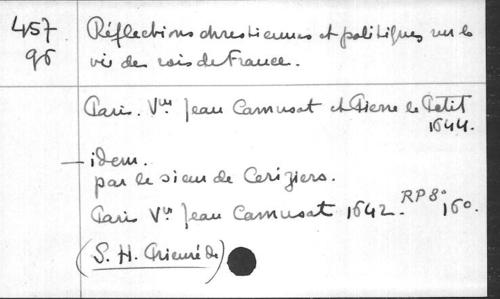 457 Réflections chrestiennes et politiques sur la
96 vie des rois de France.
Paris. Vve Jean Camusat et Pierre le Petit
1644.
— idem.
par le sieur de Ceriziers.
Paris Vve Jean Camusat 1642. RP 8° 16°.
(S. H. Prieuré de)